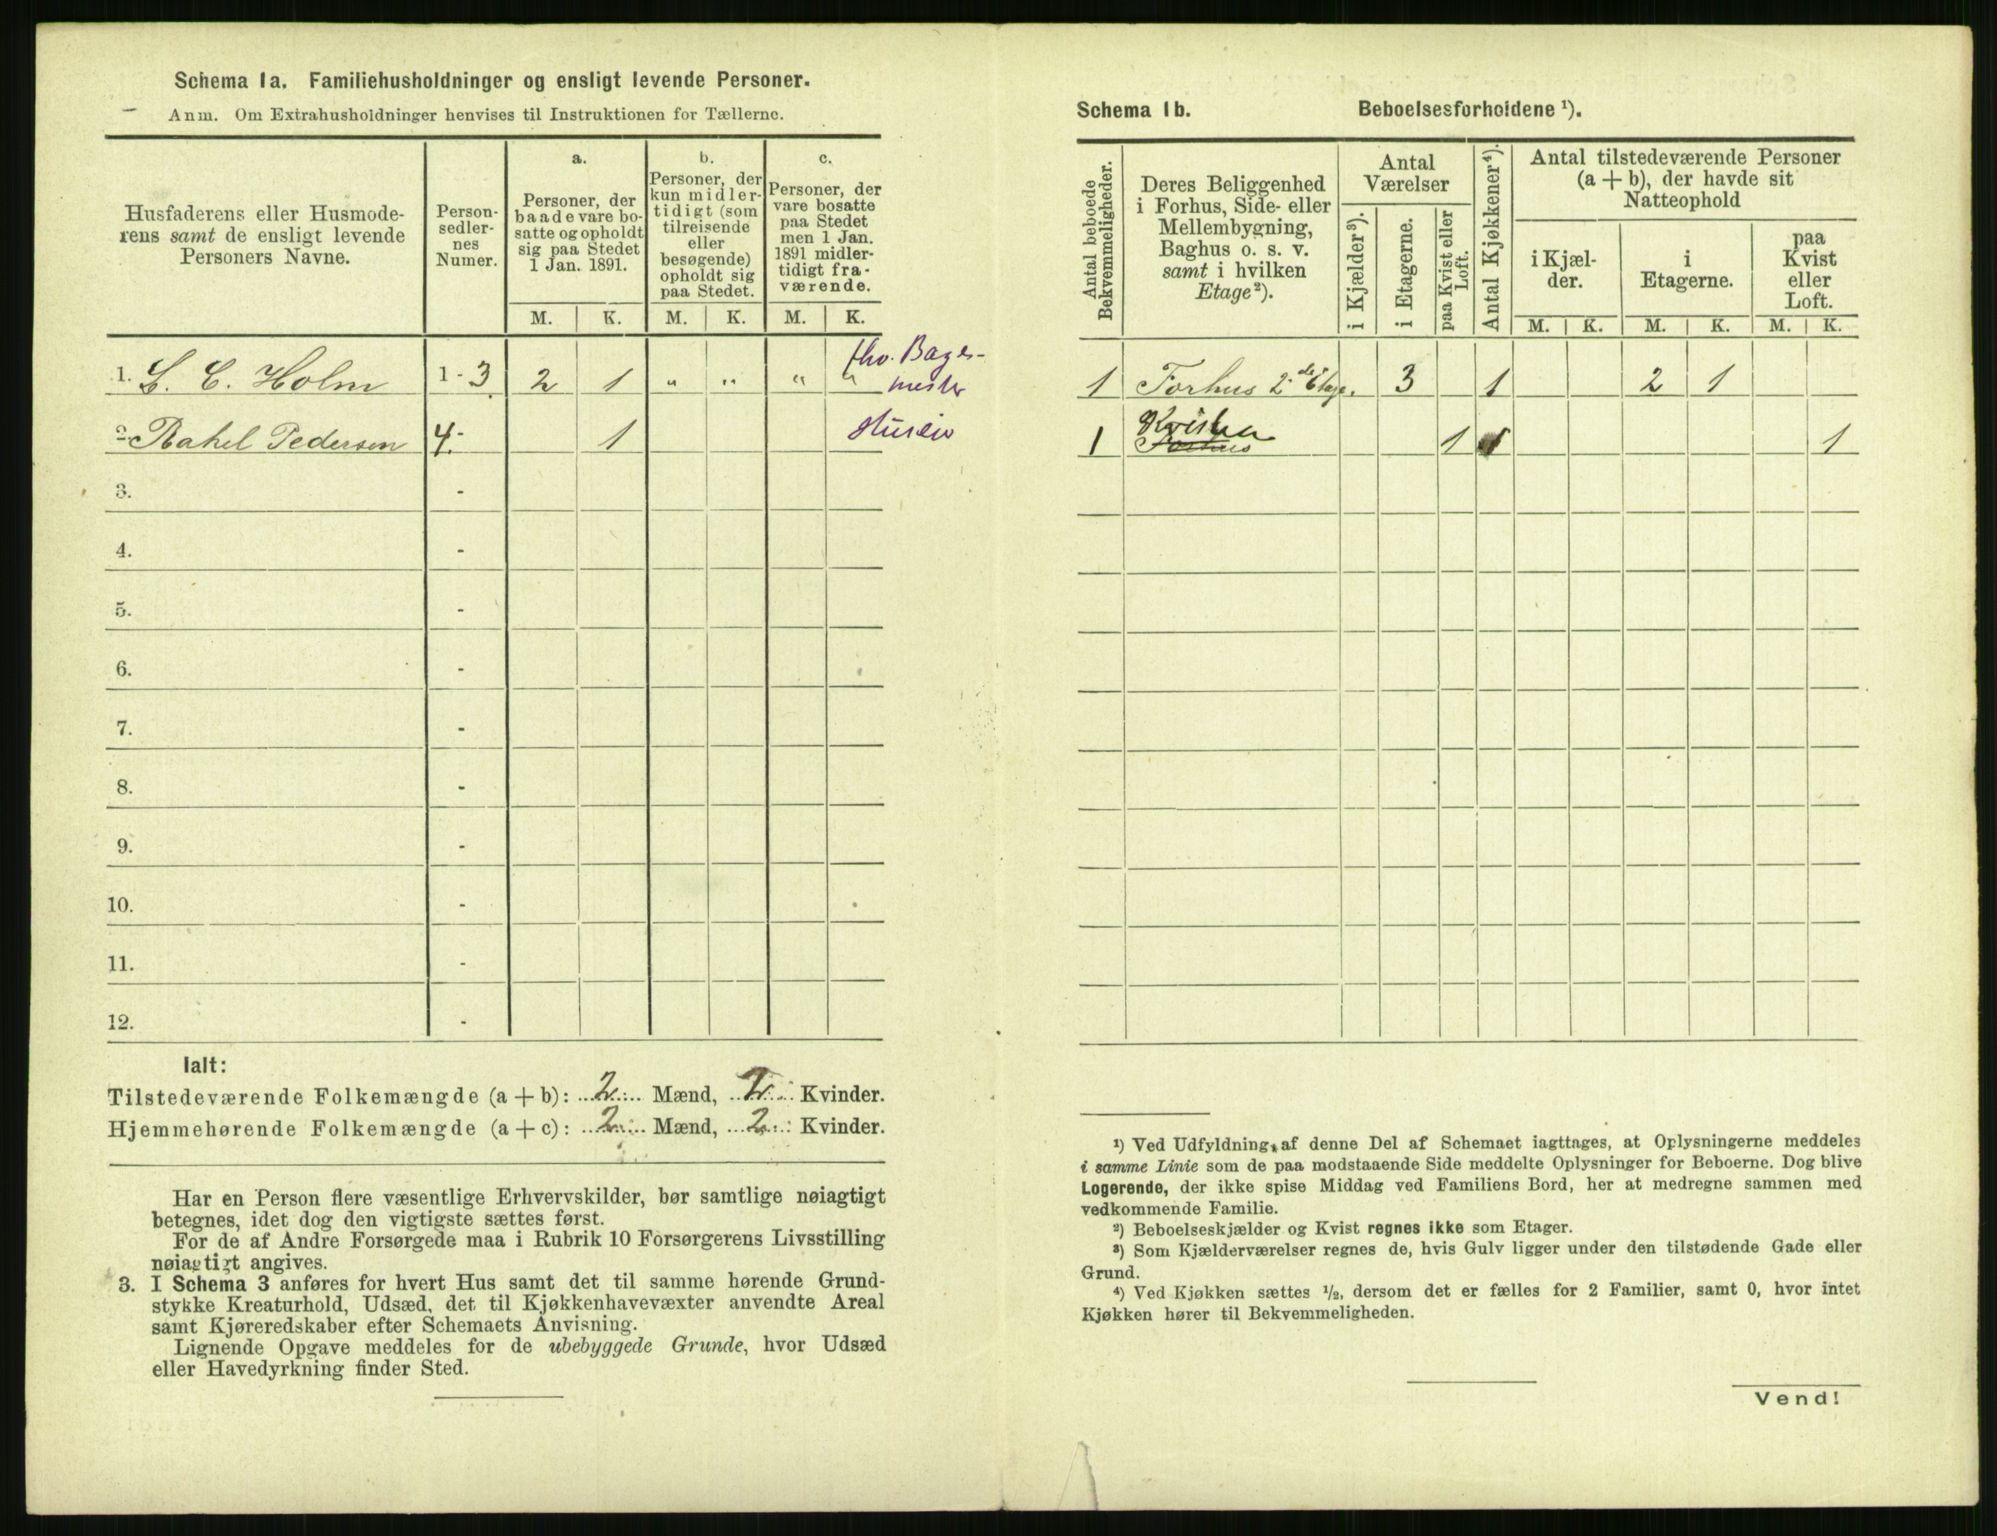 Schema 1a. Familiehusholdninger og ensligt levende Personer.
Anm. Om Extrahusholdninger henvises til Instruktionen for Tællerne.
Husfaderens eller Husmode-
rens samt de ensligt levende
Personers Navne.
Person-
sedler-
nes
Numer.
a.
Personer, der
baade vare bo-
satte og opholdt
sig paa Stedet
1 Jan. 1891.
b.
Personer, der
kun midler-
tidigt (som
tilreisende
eller
besøgende)
opholdt sig
paa Stedet.
c.
Personer, der
vare bosatte
paa Stedet
men 1 Jan.
1891 midler-
tidigt fra-
værende.
M. K. M. K. M. K.
1. L. C. Holm 1 - 3 2 1 " " " " fhv. Bager-
mester
2 Rahel Pedersen 4 - 1
3. -
4. -
5. -
6. -
7. -
8. -
9. -
10. -
11. -
12. -
Ialt:
Tilstedeværende Folkemængde (a + b): 2 Mænd, 2 Kvinder.
Hjemmehørende Folkemængde (a + c): 2 Mænd, 2 Kvinder.
Har en Person flere væsentlige Erhvervskilder, bør samtlige nøiagtigt
betegnes, idet dog den vigtigste sættes først.
For de af Andre Forsørgede maa i Rubrik 10 Forsørgerens Livsstilling
nøiagtigt angives.
3. I Schema 3 anføres for hvert Hus samt det til samme hørende Grund-
stykke Kreaturhold, Udsæd, det til Kjøkkenhavevæxter anvendte Areal
samt Kjøreredskaber efter Schemaets Anvisning.
Lignende Opgave meddeles for de ubebyggede Grunde, hvor Udsæd
eller Havedyrkning finder Sted.
Schema 1b. Beboelsesforholdene ¹).
Antal beboede
Bekvemmeligheder.
Deres Beliggenhed
i Forhus, Side- eller
Mellembygning,
Baghus o. s. v.
samt i hvilken
Etage²).
Antal
Værelser
i Kjælder³).
i Etagerne.
paa Kvist eller
Loft.
Antal Kjøkkener⁴).
Antal tilstedeværende Personer
(a + b), der havde sit
Natteophold
i Kjæl-
der.
i
Etagerne.
paa
Kvist
eller
Loft.
M. K. M. K. M. K.
1 Forhus 2de Etage. 3 1 2 1
1 Forhus 1 1
¹) Ved Udfyldning af denne Del af Schemaet iagttages, at Oplysningerne meddeles
i samme Linie som de paa modstaaende Side meddelte Oplysninger for Beboerne. Dog blive
Logerende, der ikke spise Middag ved Familiens Bord, her at medregne sammen med
vedkommende Familie.
²) Beboelseskjælder og Kvist regnes ikke som Etager.
³) Som Kjælderværelser regnes de, hvis Gulv ligger under den tilstødende Gade eller
Grund.
⁴) Ved Kjøkken sættes ½, dersom det er fælles for 2 Familier, samt 0, hvor intet
Kjøkken hører til Bekvemmeligheden.
Vend!